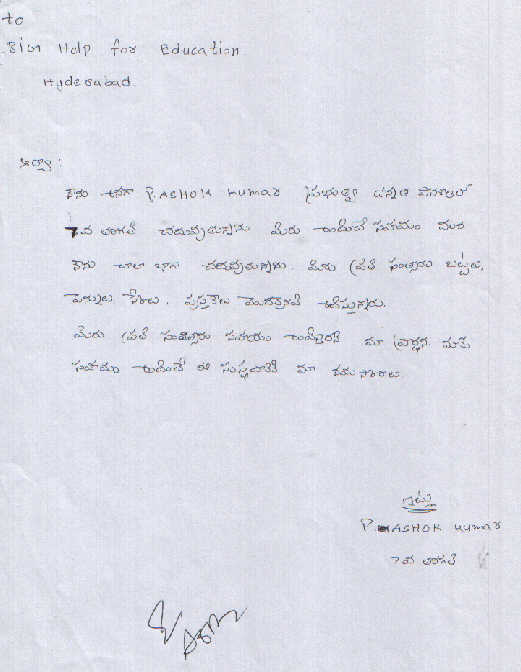 to
Sim Help for Education
Hyderabad.
ఆర్యా :
నేను అనగా P. ASHOK Kumar ప్రభుత్వ ఉన్నత పాఠశాలలో
7వ తరగతి చదువుచున్నాను మీరు అందించే సహాయం వలన
నేను చాలా బాగా చదువుచున్నాను. మీరు ప్రతి సంవత్సరం బట్టలు,
పెన్నులు, పుస్తకాలు మొదలైనవి ఇస్తున్నారు.
మీరు ప్రతి సంవత్సరం సహాయం అందించాలని మా ప్రార్థన మాకు
సహాయం అందించే ఈ సంస్థలకి మా నమస్కారాలు.
ఇట్లు
P. ASHOK Kumar
7వ తరగతి